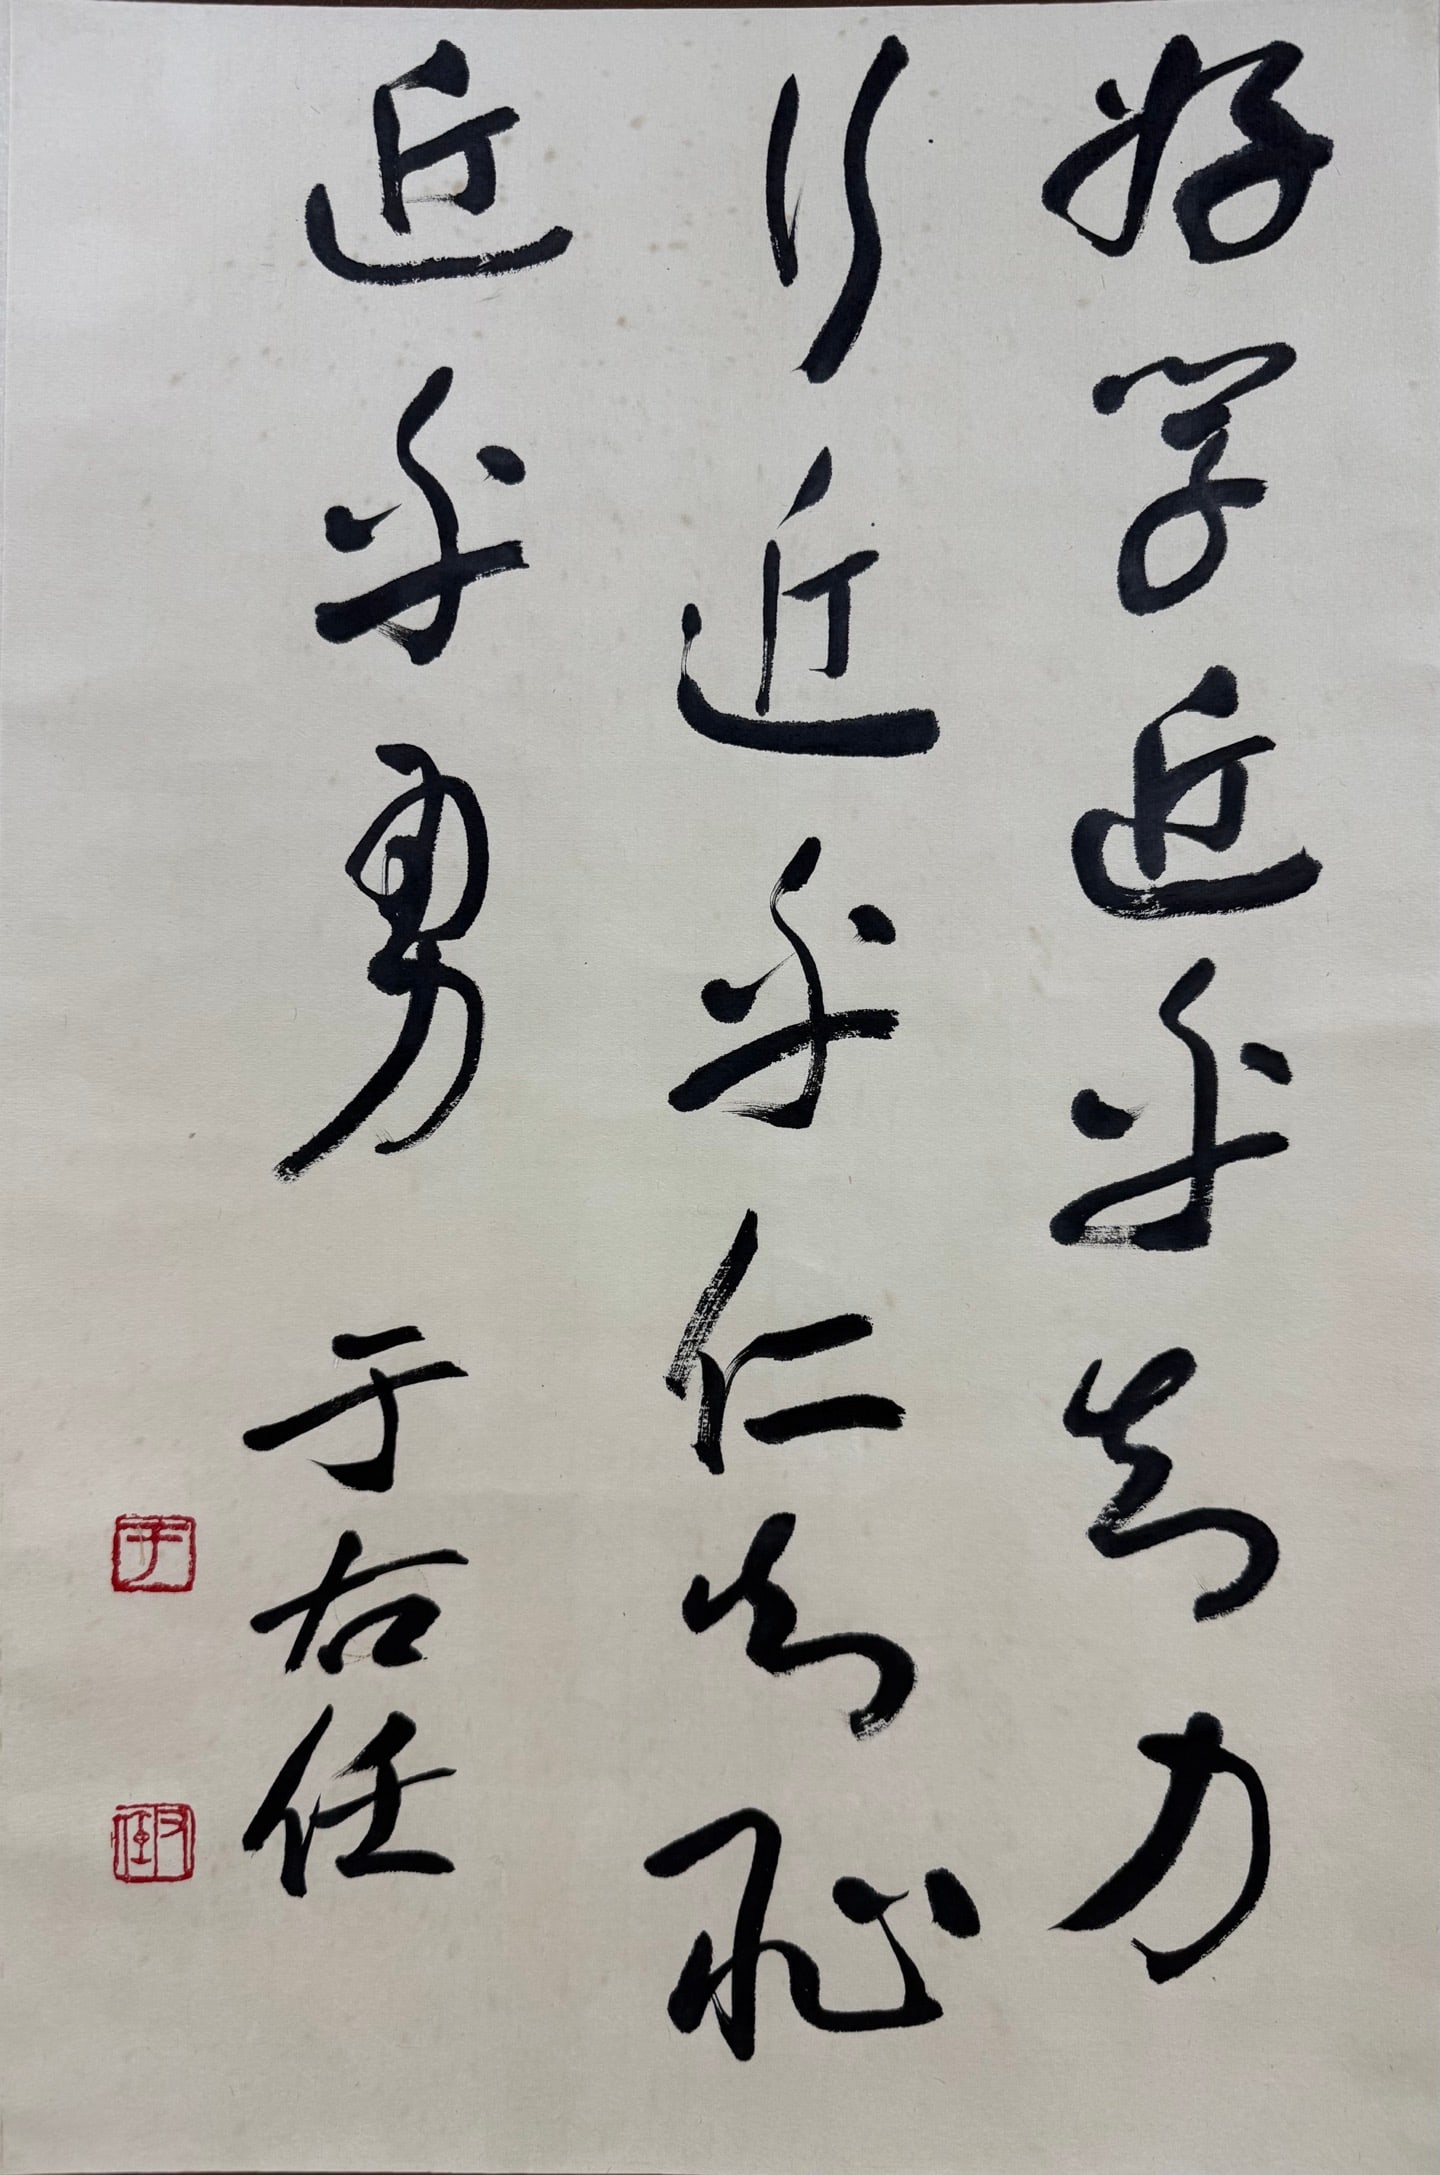 好学近乎知力
行近乎仁知恥
近乎勇 于右任
于
右任